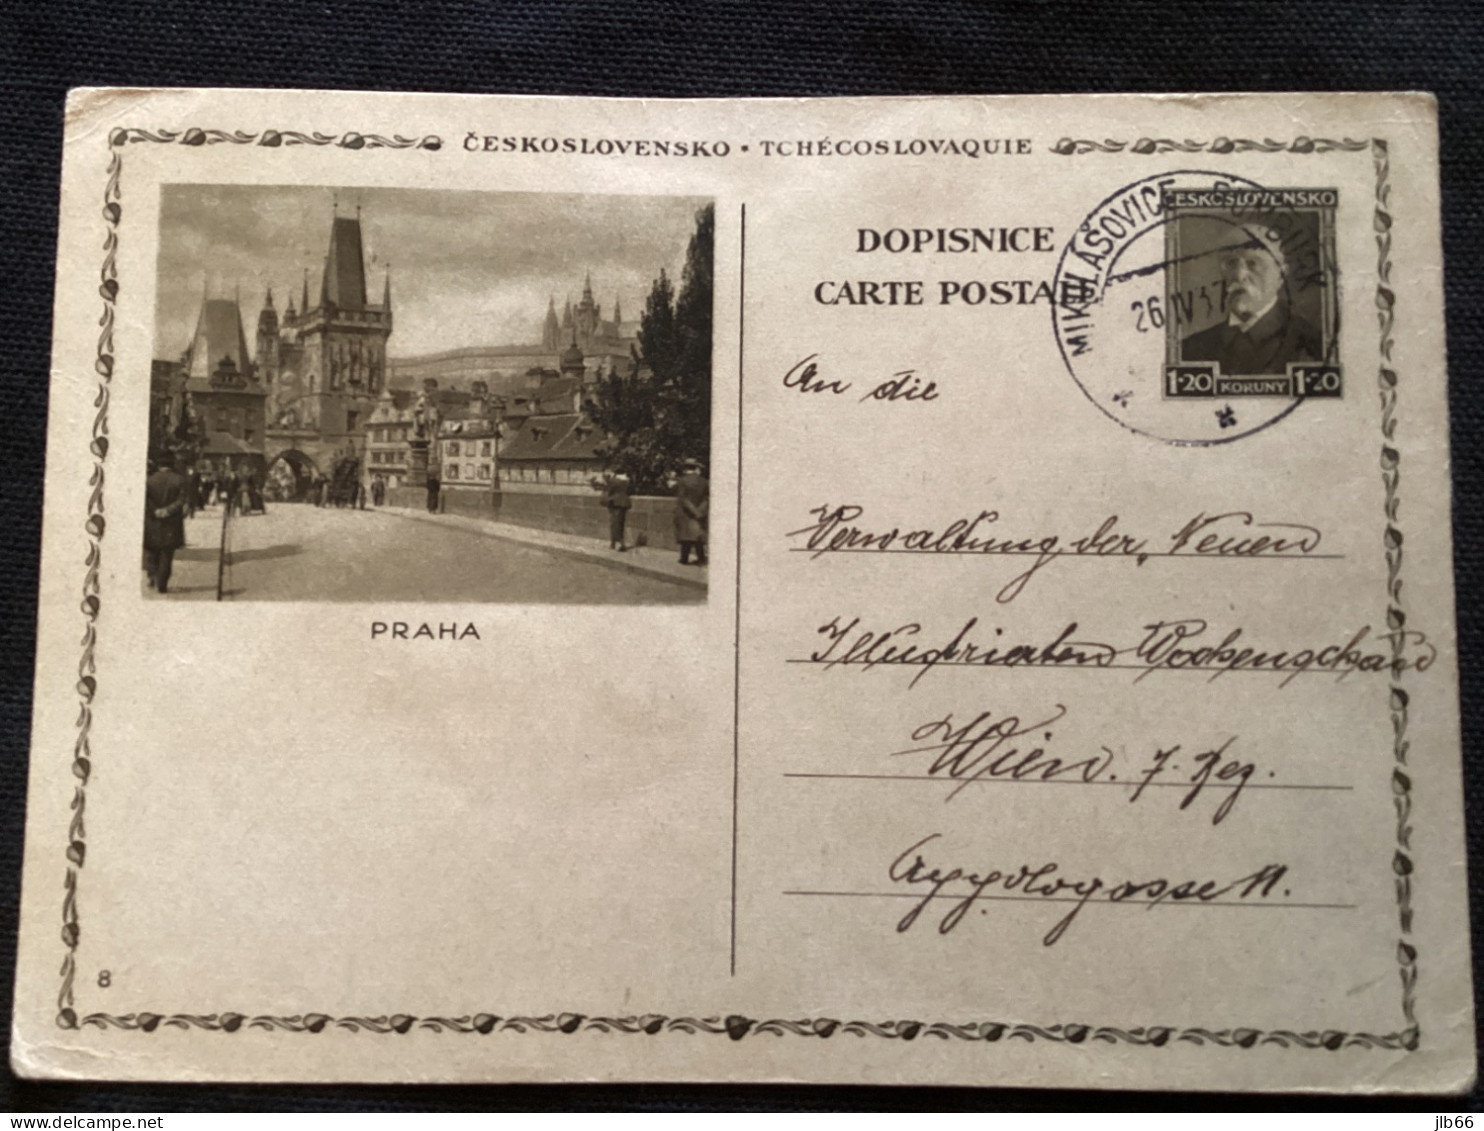 ČESKOSLOVENSKO • TCHÉCOSLOVAQUIE
DOPISNICE
CARTE POSTALE
ČESKOSLOVENSKO
1·20 KORUNY 1·20
MIKULÁŠOVICE
26.IV 37
An die
Verwaltung der „Neuen
Illustrierten Wochenschau
Wien. 7. Bez.
11.
PRAHA
8
jlb66